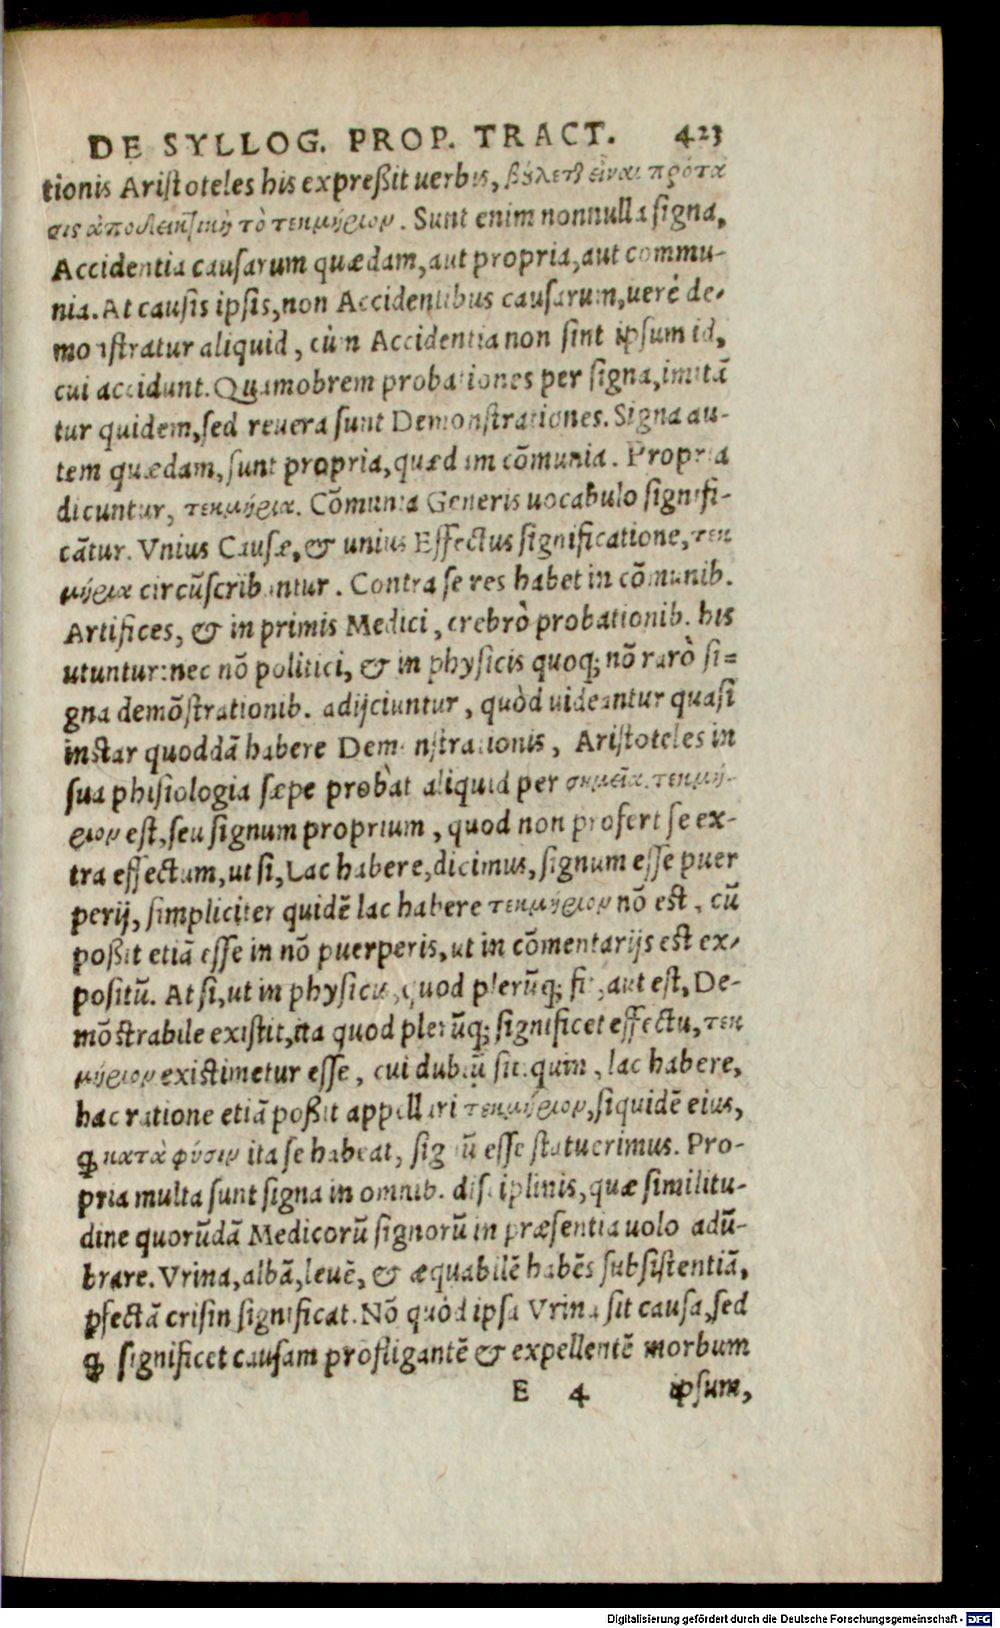 DE SYLLOG. PROP. TRACT. 423
tionis Aristoteles his expreßit uerbis, βόλετ εἶναι πρότα
σις ἀποδεικτικὴ τὸ τεκμήριον. Sunt enim nonnulla signa,
Accidentia causarum quædam, aut propria, aut commu-
nia. At causis ipsis, non Accidentibus causarum, uerè de-
monstratur aliquid, cùm Accidentia non sint ipsum id,
cui accidunt. Quamobrem probationes per signa, imitã
tur quidem, sed reuera sunt Demonstrationes. Signa au-
tem quædam, sunt propria, quædam cõmunia. Propria
dicuntur, τεκμήρια. Cõmunia Generis uocabulo signifi-
cãtur. Vnius Causæ, & unius Effectus significatione, τεκ
μήρια circũscribuntur. Contra se res habet in cõmunib.
Artifices, & in primis Medici, crebrò probationib. his
utuntur: nec nõ politici, & in physicis quoq; nõ rarò si=
gna demõstrationib. adijciuntur, quòd uideantur quasi
instar quoddã habere Demonstrationis, Aristoteles in
sua phisiologia sæpe probat aliquid per σημεῖα. τεκμή-
ριον est, seu signum proprium, quod non profert se ex-
tra effectum, ut si, Lac habere, dicimus, signum esse puer
perij, simpliciter quidẽ lac habere τεκμήριον nõ est, cũ
poßit etiã esse in nõ puerperis, ut in cõmentarijs est ex-
positũ. At si, ut in physicis, quod plerũq; fit, aut est, De-
mõstrabile existit, ita quod plerũq; significet effectũ, τεκ
μήριον existimetur esse, cui dubiũ sit, quin, lac habere,
hac ratione etiã poßit appellari τεκμήριον, siquidẽ eius,
ꝙ κατὰ φύσιν ita se habeat, signũ esse statuerimus. Pro-
pria multa sunt signa in omnib. disciplinis, quæ similitu-
dine quorũdã Medicorũ signorũ in præsentia uolo adũ-
brare. Vrina, albã, leuẽ, & æquabilẽ habẽs subsistentiã,
ꝑfectã crisin significat. Nõ quòd ipsa Vrina sit causa, sed
ꝙ significet causam profligantẽ & expellentẽ morbum
E 4 ipsum,
Digitalisierung gefördert durch die Deutsche Forschungsgemeinschaft - DFG